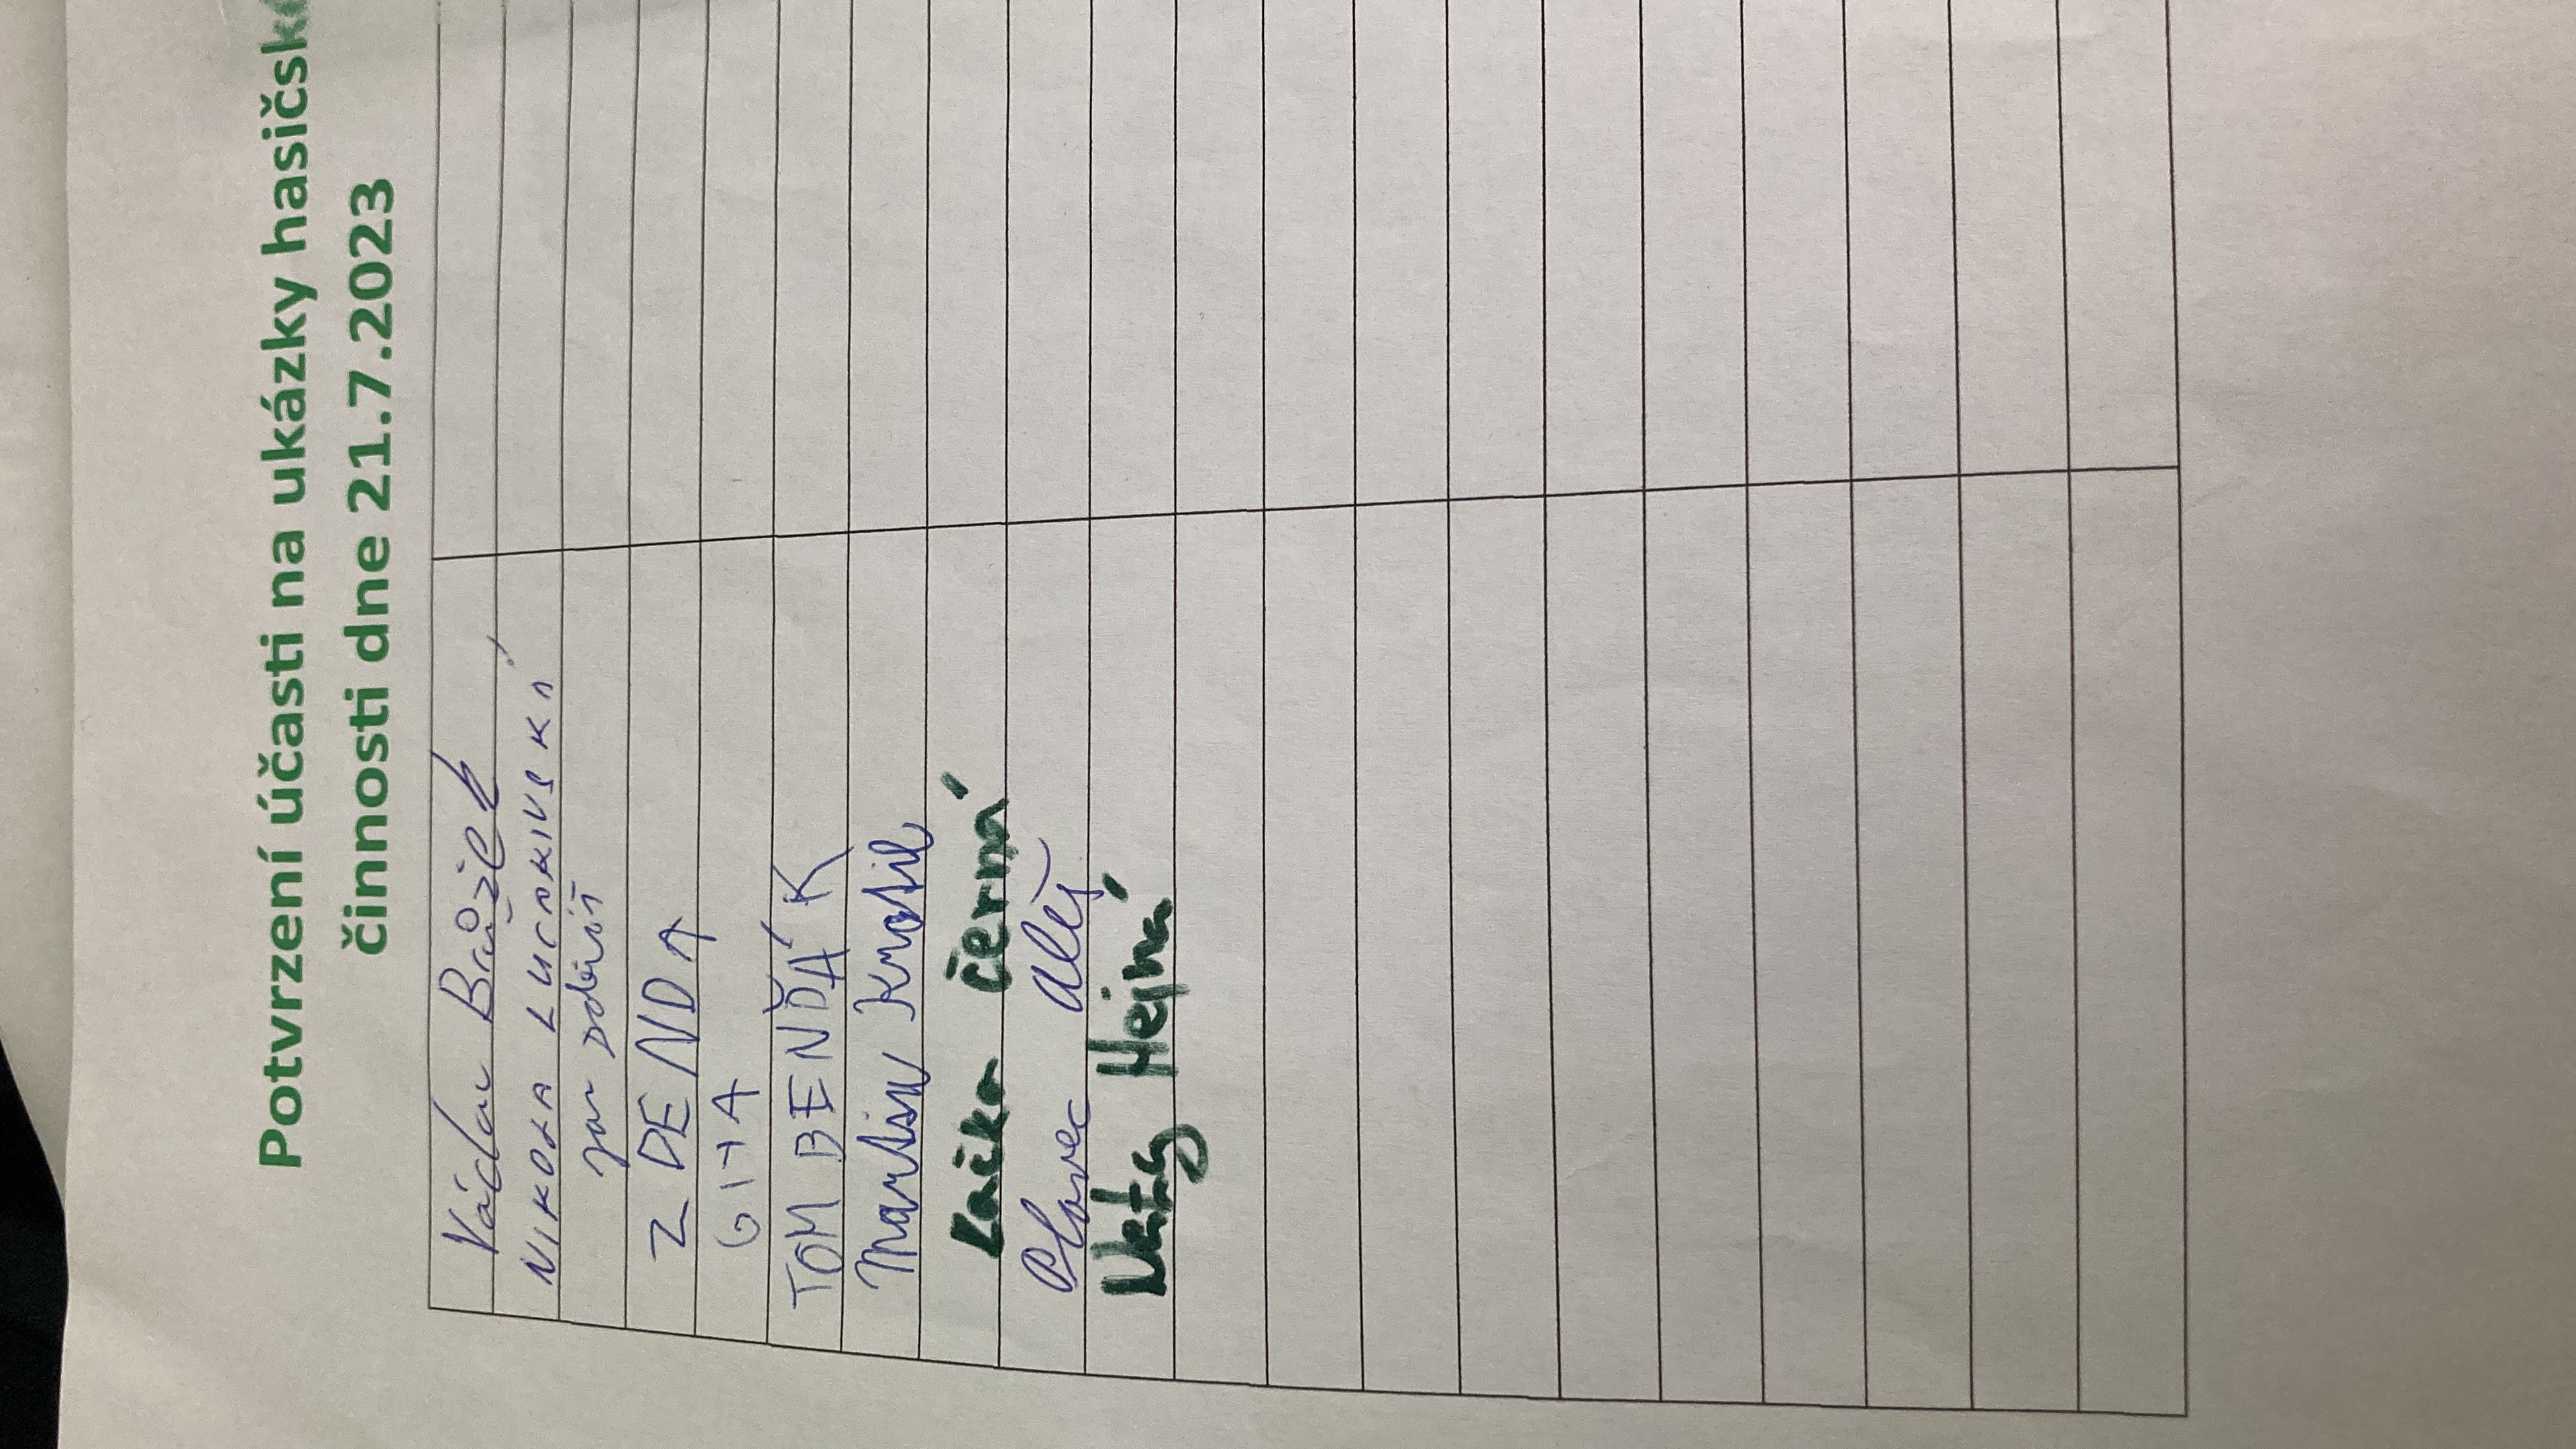 Potvrzení účasti na ukázky hasičské
činnosti dne 21.7.2023
Václav Brůžek
NIKOLA
Jan Dobiáš
ZDENDA
GITA
TOM BENĎÁK
Martin Krosil
Kačka černá
Plavec Aleš
Naty Hejná